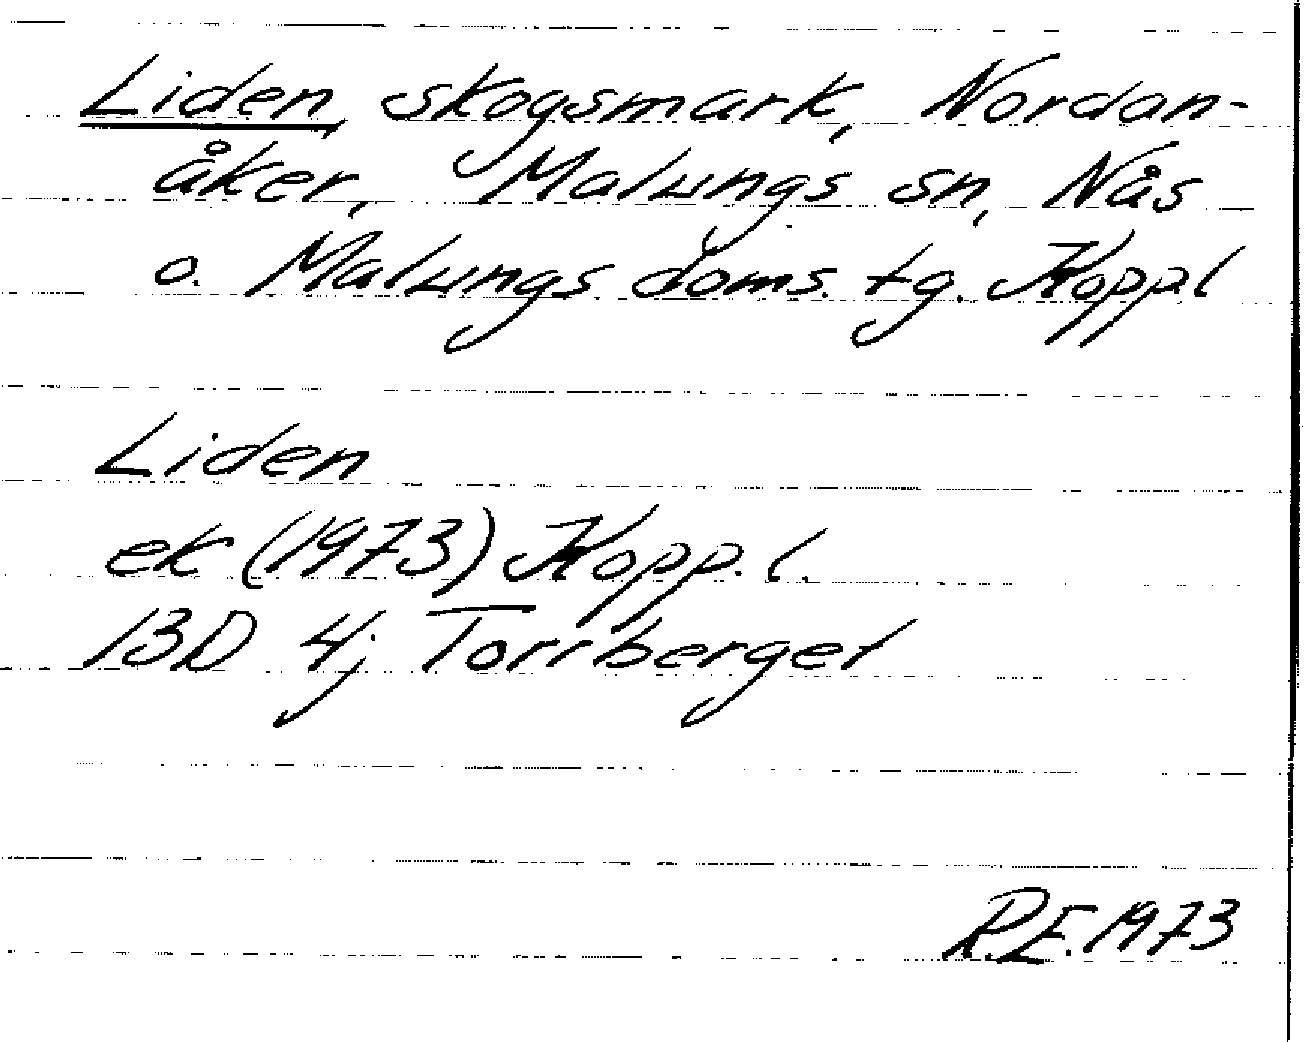 Liden, skogsmark, Nordan-
åker, Malungs sn, Nås
o. Malungs doms. tg. Koppl
Liden
ek (1973) Kopp. l.
13D 4j Torrberget
R.E. 1973